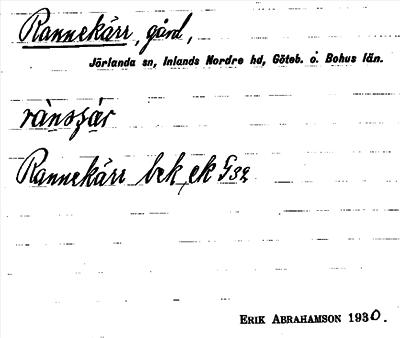 Rannekärr, gård,
Jörlanda sn, Inlands Nordre hd, Göteb. o. Bohus län.
Rannekärr bek, ek G32
ERIK ABRAHAMSON 1930.